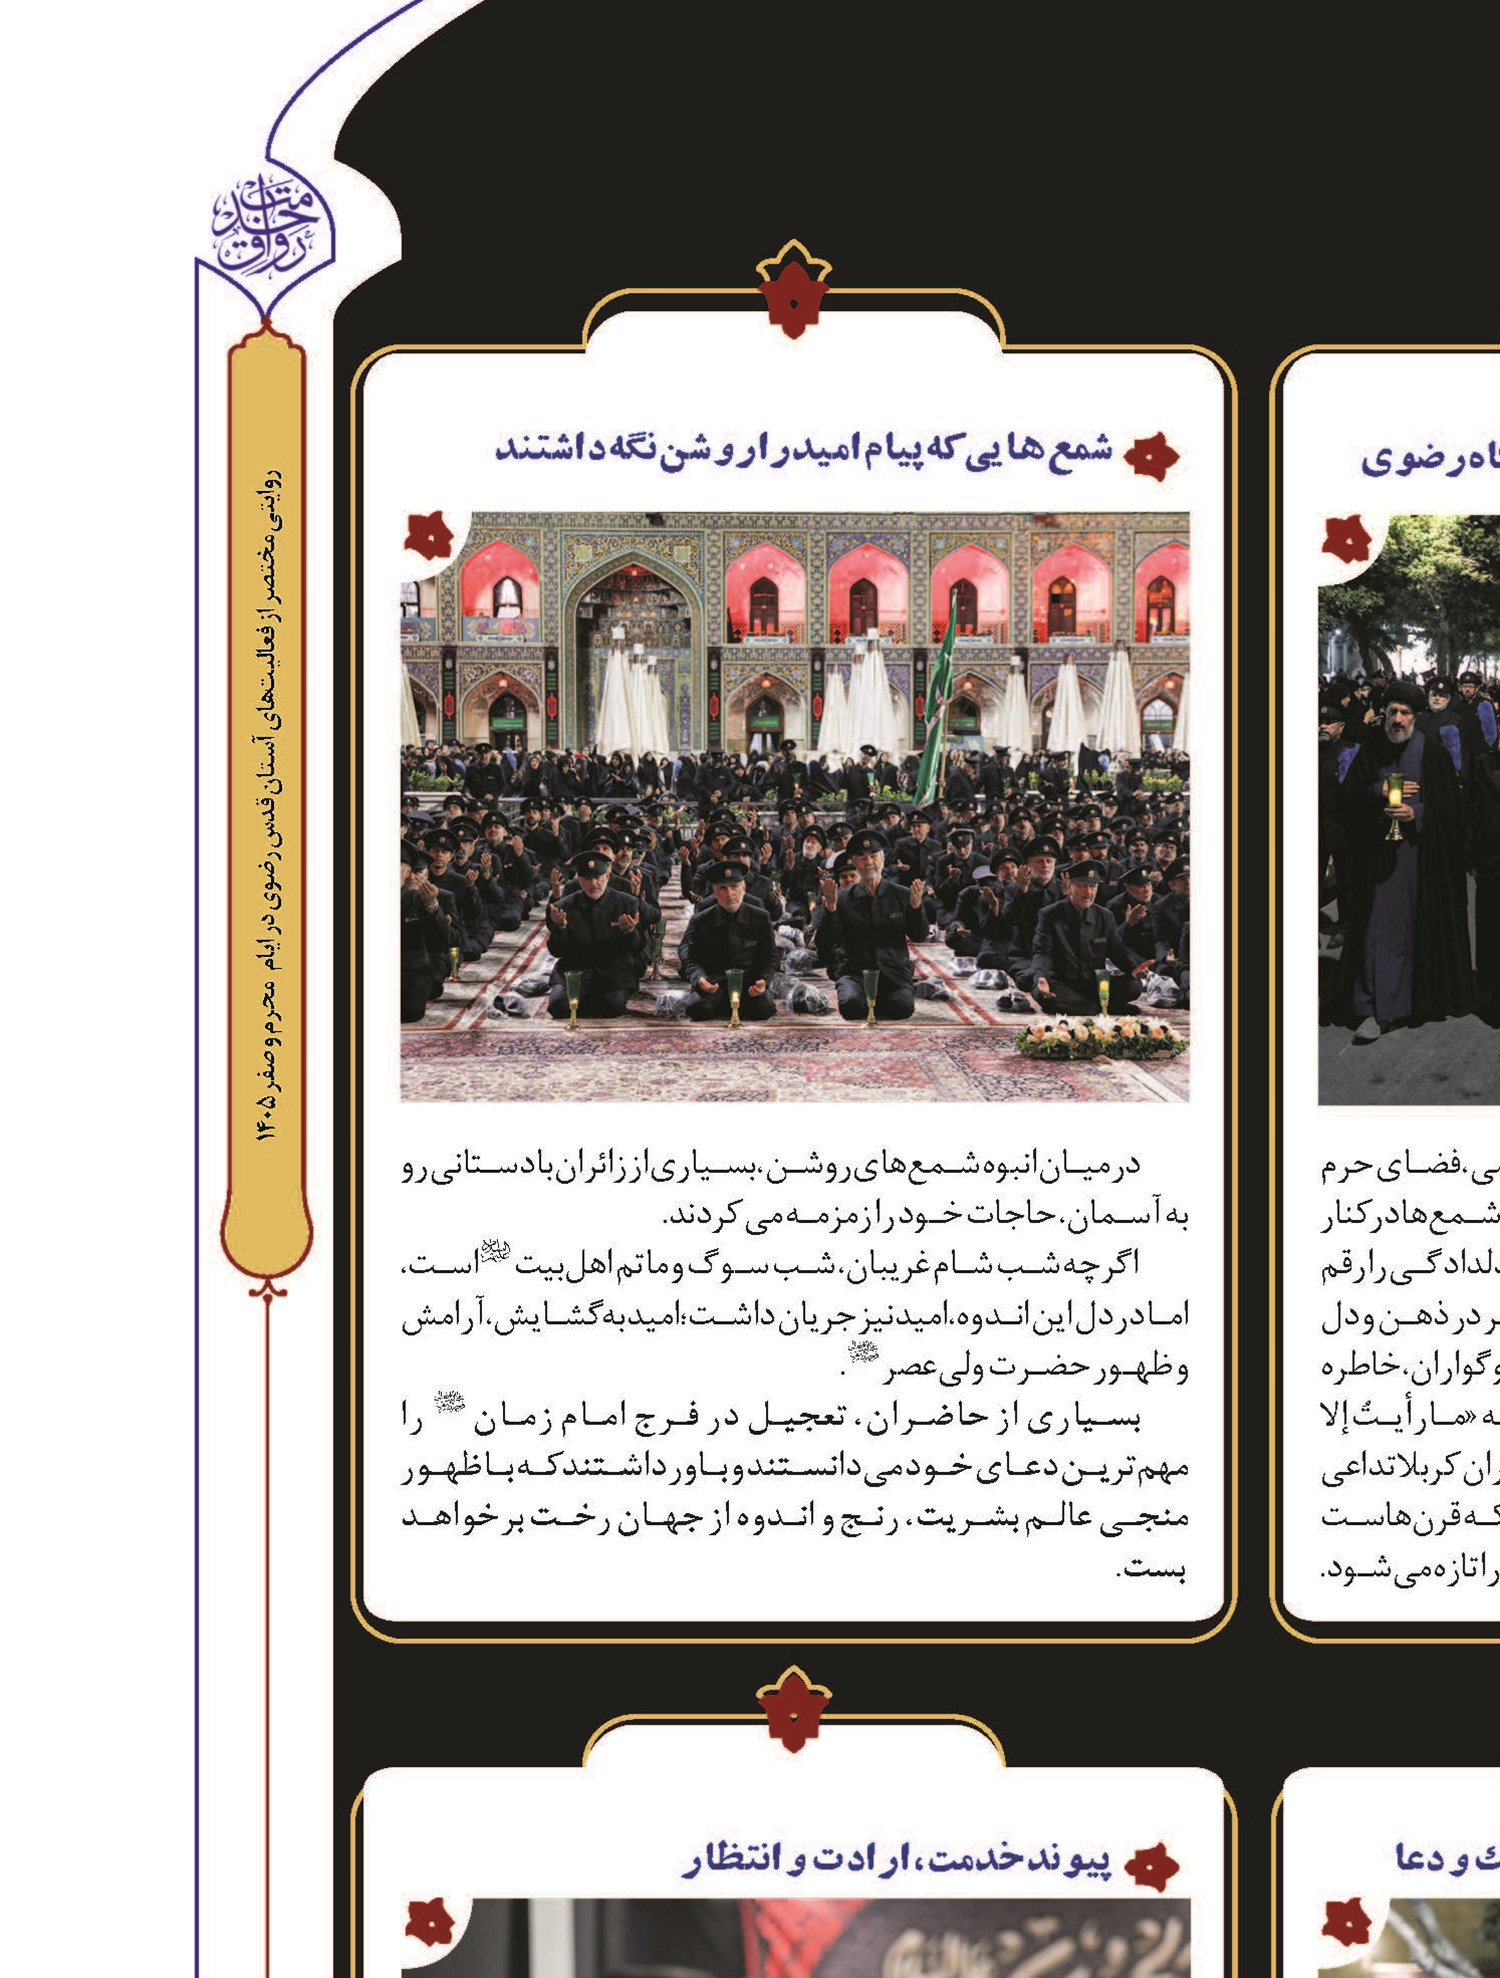 رواق خدمت
روایتی مختصر از فعالیت‌های آستان قدس رضوی در ایام محرم و صفر ۱۴۰۵
رضوی
ی، فضای حرم
شمع‌ها در کنار
دلدادگی را رقم
در ذهن و دل
وگواران، خاطره
«ما رأیتُ إلا
ران کربلا تداعی
که قرن‌هاست
را تازه می‌شود.
شمع‌هایی که پیام امید را روشن نگه داشتند
در میان انبوه شمع‌های روشن، بسیاری از زائران با دستانی رو
به آسمان، حاجات خود را زمزمه می‌کردند.
اگرچه شب شام غریبان، شب سوگ و ماتم اهل بیت علیهم‌السلام است،
اما در دل این اندوه، امید نیز جریان داشت؛ امید به گشایش، آرامش
و ظهور حضرت ولی عصر .
بسیاری از حاضران، تعجیل در فرج امام زمان را
مهم‌ترین دعای خود می‌دانستند و باور داشتند که با ظهور
منجی عالم بشریت، رنج و اندوه از جهان رخت بر خواهد
بست.
و دعا
پیوند خدمت، ارادت و انتظار